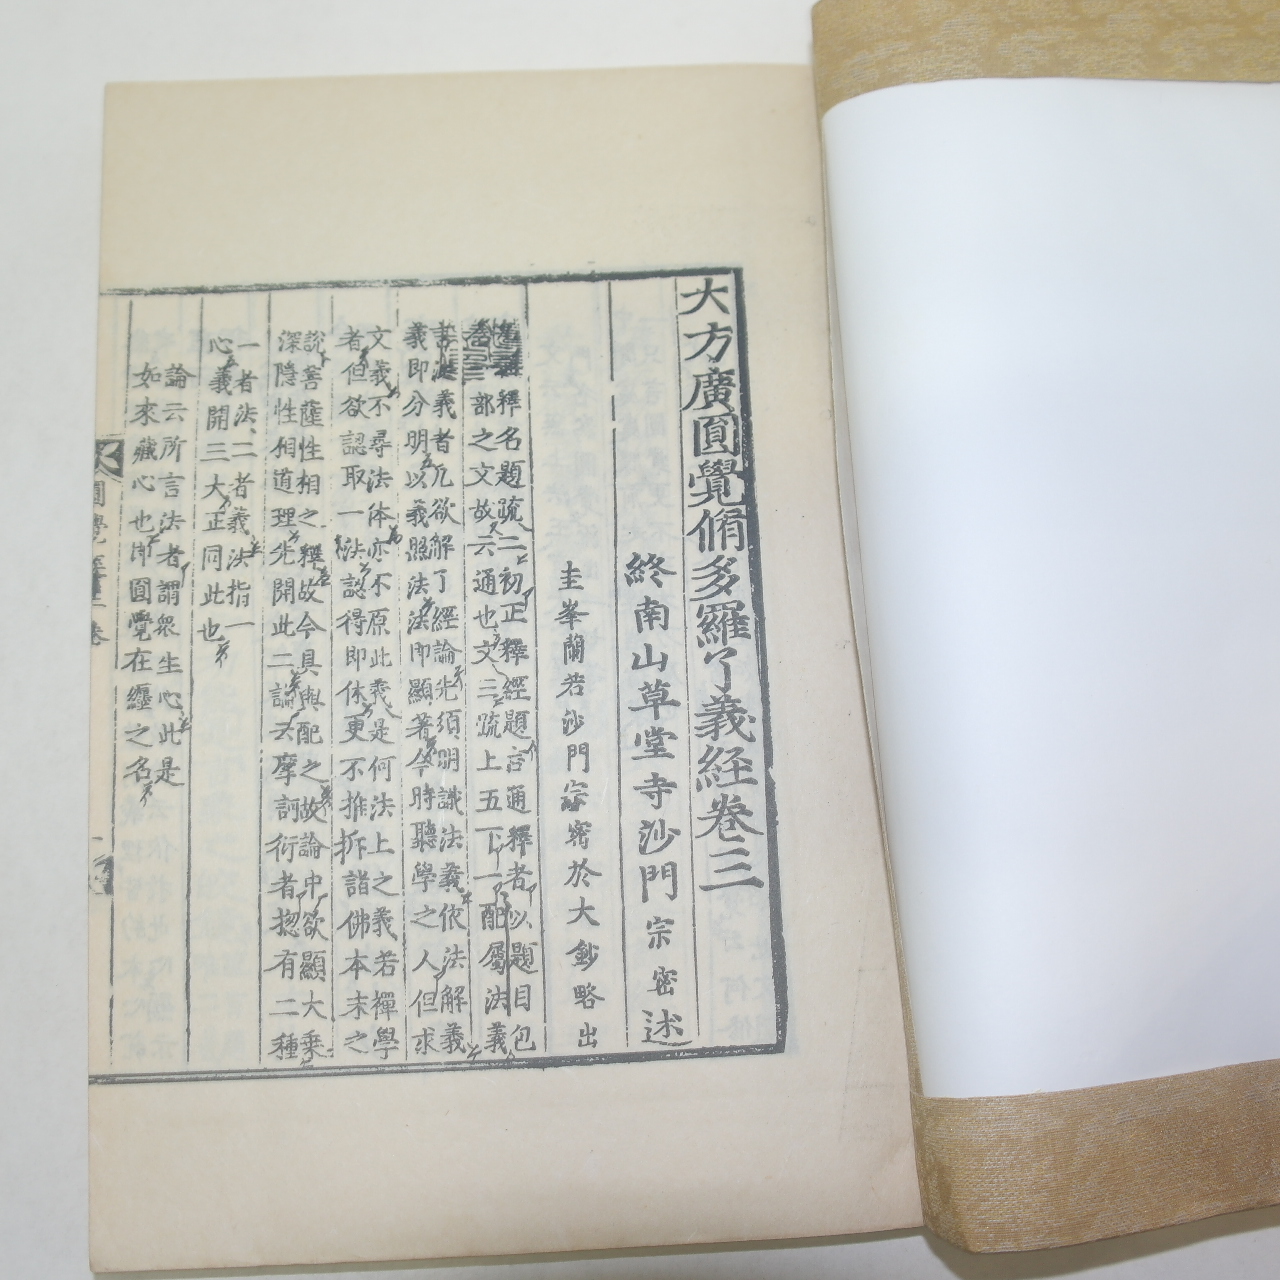 大方廣圓覺脩多羅了義經卷三
終南山草堂寺沙門宗密述
圭峯蘭若沙門宗密於大鈔略出
釋名題疏二初正釋經題言通釋者以題目包
部之文故云通也文三疏上五下一配屬法義
義者凡欲解了經論先須明識法義依法解義
義即分明以義照法法即顯著今時聽學之人但求
文義不尋法体亦不原此義是何法上之義若禪學
者但欲認取一法認得即休更不推拆諸佛本末之
說菩薩性相之釋故今具與配之故論中欲顯大乗
深隱性相道理先開此二論云摩訶衍者揔有二種
一者法二者義法指一
心義開三大正同此也
論云所言法者謂衆生心此是
如來藏心也即圓覺在纒之名
圓覺
卷